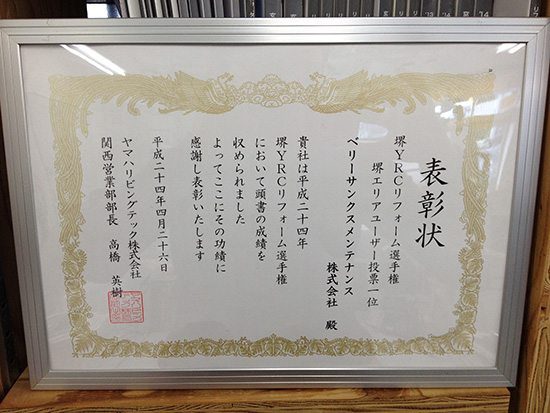 表彰状
堺YRCリフォーム選手権
堺エリアユーザー投票一位
ベリーサンクスメンテナンス
株式会社 殿
貴社は平成二十四年
堺YRCリフォーム選手権
において頭書の成績を
収められました
よってここにその功績に
感謝し表彰いたします
平成二十四年四月二十六日
ヤマハリビングテック株式会社
関西営業部部長 高橋 英樹